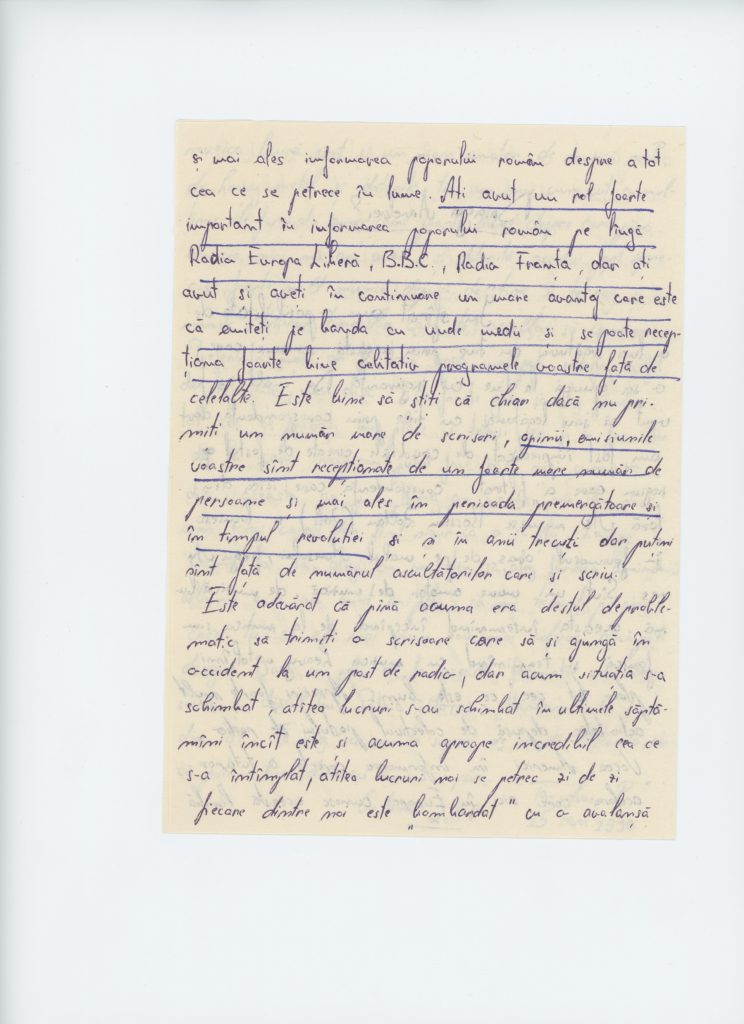 și mai ales informarea poporului român despre a tot
cea ce se petrece în lume. Ați avut un rol foarte
important în informarea poporului român pe lîngă
Radio Europa Liberă, B.B.C., Radio Franța, dar ați
avut și aveți în continuare un mare avantaj care este
că emiteți pe banda cu unde medii și se poate recep-
ționa foarte bine calitativ programele voastre față de
celelalte. Este bine să știți că chiar dacă nu pri-
miți un număr mare de scrisori, opinii, emisiunile
voastre sînt recepționate de un foarte mare număr de
persoane și mai ales în perioada premergătoare și
în timpul revoluției și și în anii trecuți dar puțini
sînt față de numărul ascultătorilor care și scriu.
Este adevărat că pînă acuma era destul de proble-
matic să trimiți o scrisoare care să și ajungă în
occident la un post de radio, dar acum situația s-a
schimbat, atîtea lucruri s-au schimbat în ultimele săptă-
mîni încît este și acuma aproape incredibil cea ce
s-a întîmplat, atîtea lucruri noi se petrec zi de zi
fiecare dintre noi este „bombardat" cu o avalanșă